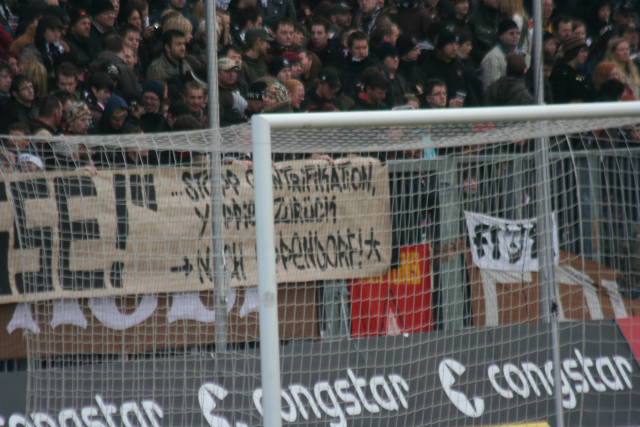 SSE!!!
...STOPP GENTRIFIKATION,
ZURÜCK
→ NACH EPPENDORF!
congstar congstar congstar